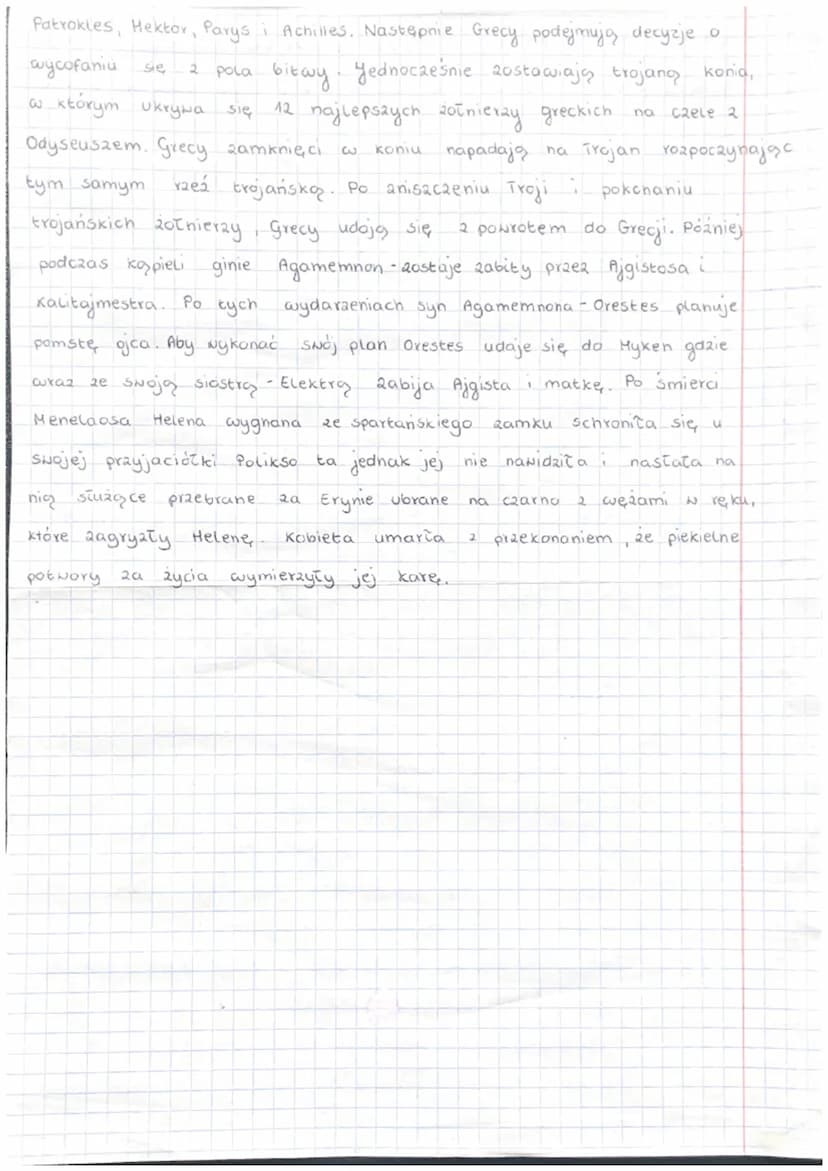 Patrokles, Hektor, Parys i Achilles. Następnie Grecy podejmują decyzje o
wycofaniu się z pola bitwy. Jednocześnie zostawiają trojaną konia,
w którym ukrywa się 12 najlepszych żołnierzy greckich na czele z
Odyseuszem. Grecy zamknięci w koniu napadają na Trojan rozpoczynając
tym samym rzeź trojańską. Po zniszczeniu Troji i pokonaniu
trojańskich żołnierzy, Grecy udoją się z powrotem do Grecji. Później
podczas kąpieli ginie Agamemnon - zostaje zabity przez Ajgistosa i
Kalitajmestra. Po tych wydarzeniach syn Agamemnona - Orestes planuje
pomstę ojca. Aby wykonać swój plan Orestes udaje się do Myken gdzie
wraz ze swoją siostrą - Elektrą zabija Ajgista i matkę. Po śmierci
Menelaosa Helena wygnana ze spartańskiego zamku schroniła się u
swojej przyjaciółki Polikso ta jednak jej nie nawidziła i nasłała na
nią służące przebrane za Erynie ubrane na czarno z wężami w ręku,
które zagryzły Helenę. Kobieta umarła z przekonaniem, że piekielne
potwory za życia wymierzyły jej karę.